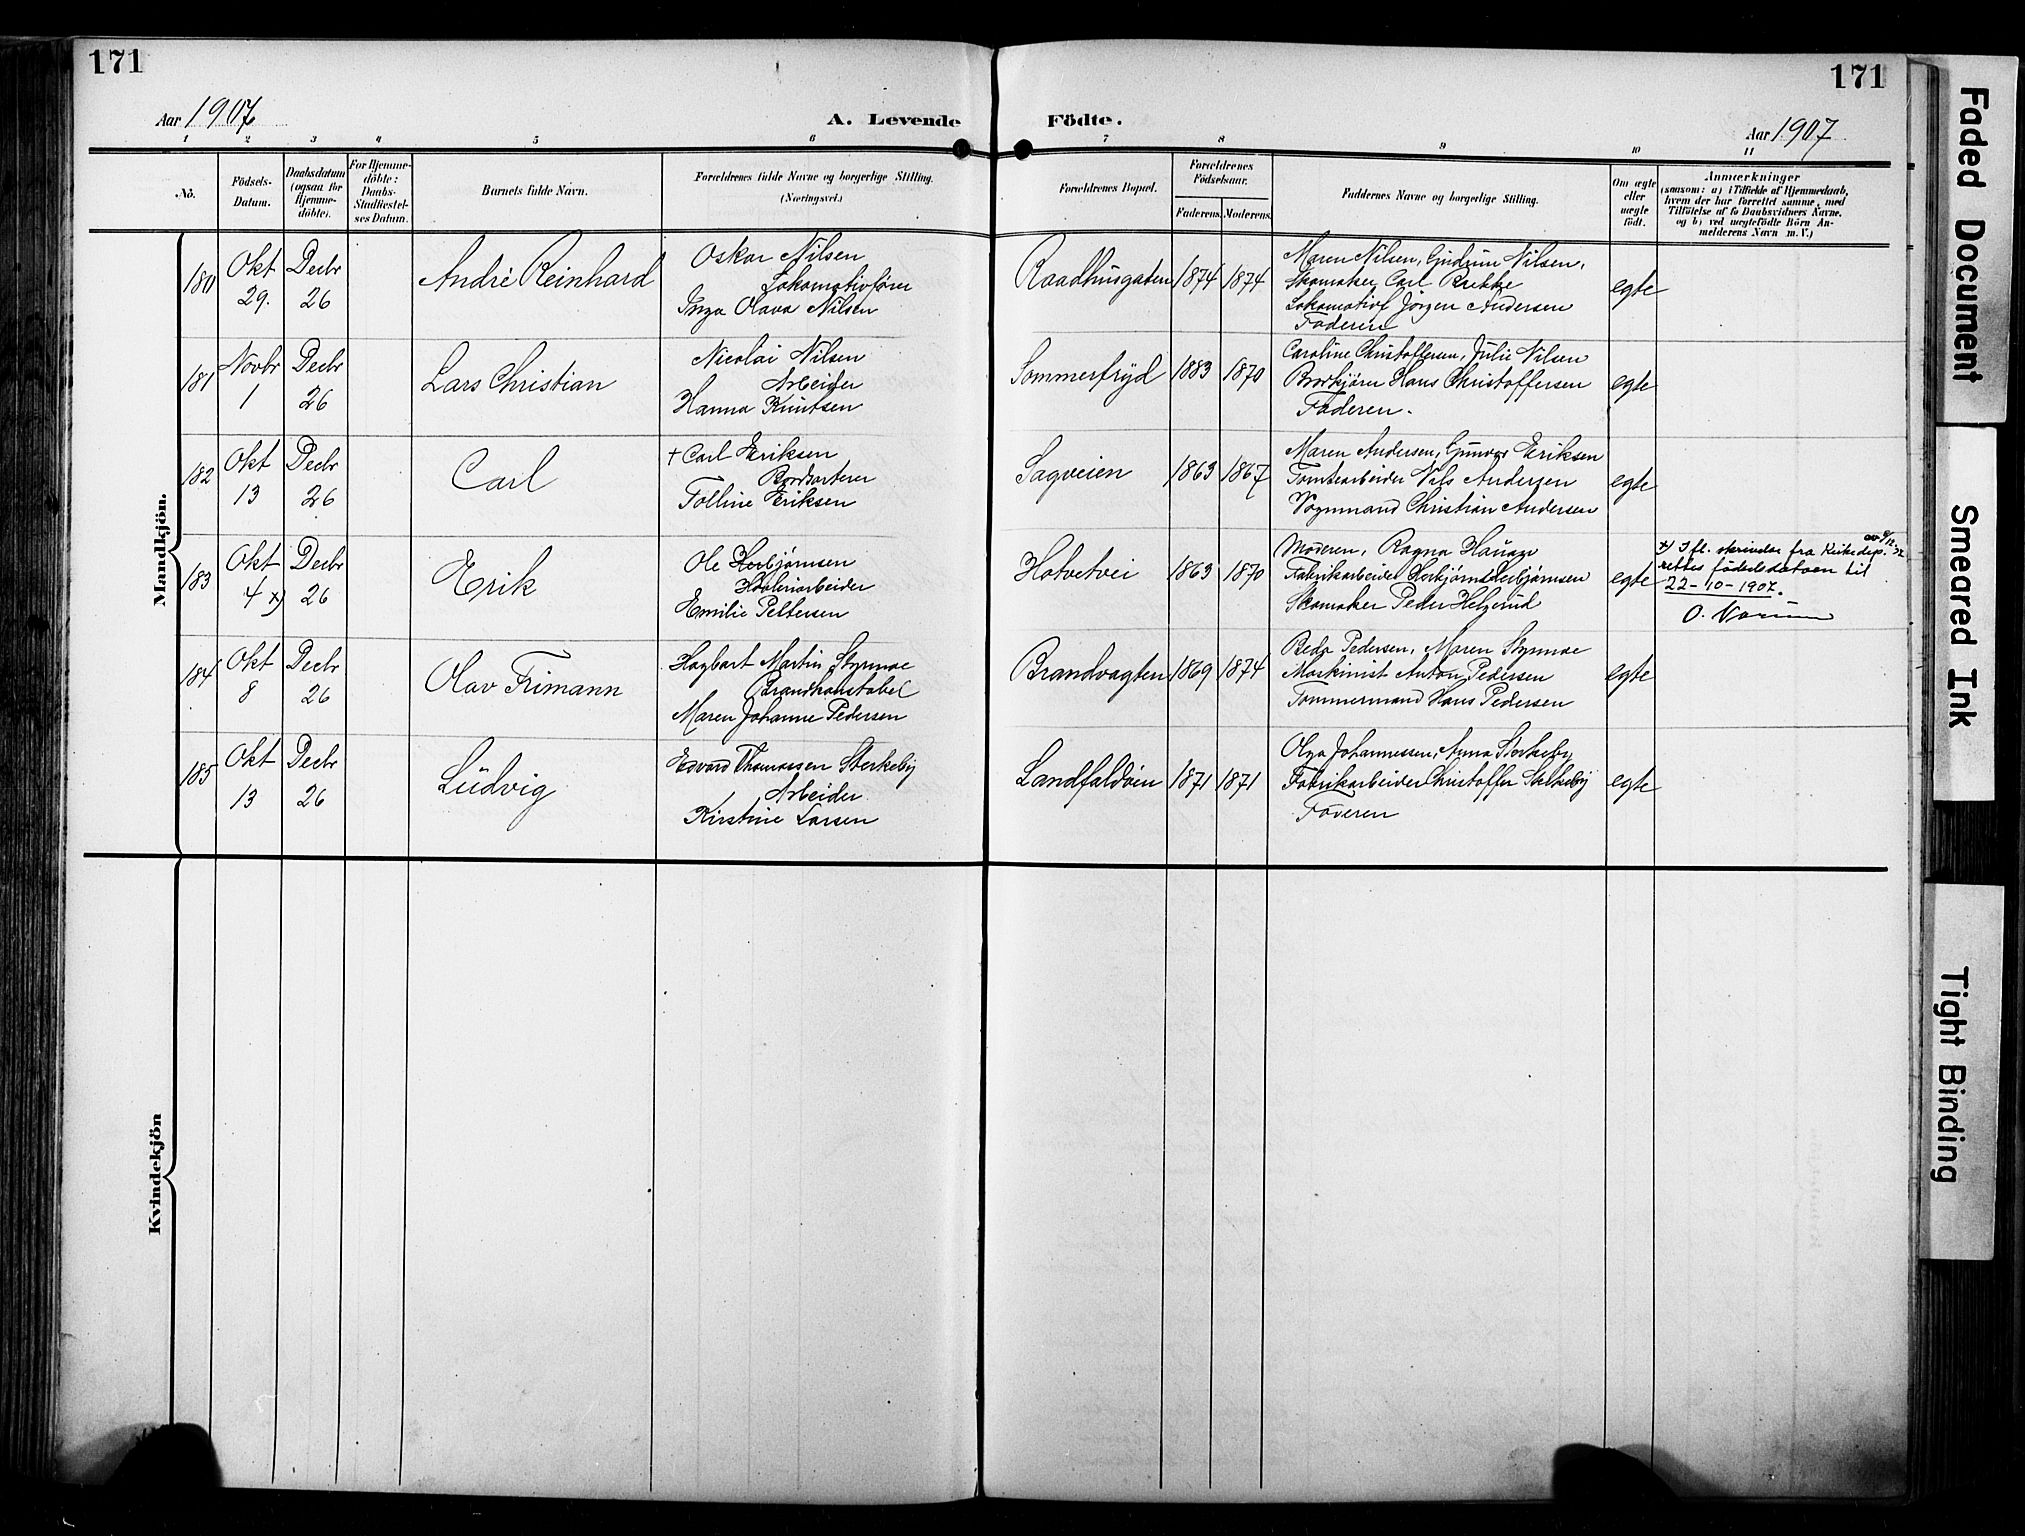 171
171
Aar 1907
A. Levende Födte.
Aar 1907
1 2 3 4 5 6 7 8 9 10 11
No.
Födsels-
Datum.
Daabsdatum
(ogsaa for
Hjemme-
döbte).
For Hjemme-
döbte:
Daabs-
Stadfæstel-
ses Datum.
Barnets fulde Navn.
Forældrenes fulde Navne og borgerlige Stilling.
(Næringsvei.)
Forældrenes Bopæl.
Forældrenes
Födselsaar.
Faderens. Moderens.
Faddernes Navne og borgerlige Stilling.
Om ægte
eller
uægte
født.
Anmærkninger
(saasom: a) i Tilfælde af Hjemmedaab,
hvem der har forrettet samme, med
Tilföielse af to Daabsvidners Navne,
og b) ved uægtefödte Börn An-
melderens Navn m. V.)
Mandkjön.
180
Okt
29.
Decbr
26
André Reinhard
Oskar Nilsen
Lokomotivfører
Inga Olava Nilsen
Raadhusgaden
1874
1874
Maren Nilsen, Gudrun Nilsen,
Skomaker Carl
Lokomotivf Jörgen Andersen
Faderen
egte
181
Novbr
1
Decbr
26
Lars Christian
Nicolai Nilsen
Arbeider
Hanna Knutsen
Sommerfryd
1883
1870
Caroline Christoffersen, Julie Nilsen
Hans Christoffersen
Faderen.
egte
182
Okt
13
Decbr
26
Carl
+ Carl Eriksen
Bordsorterer
Tolline Eriksen
Sagveien
1863
1867
Maren Andersen, Gunvor Eriksen
Tomtearbeider Nils Andersen
Vognmand Christian Andersen
egte
183
Okt
4 x)
Decbr
26
Erik
Ole Herbjørnsen
Høvleriarbeider
Emilie Pettersen
Hotvetvei
1863
1870
Moderen, Ragna Hauge
Fabrikarbeider Herbjørn Herbjørnsen
Skomaker Peder Helgerud
egte
x) I fl. skrivelse fra Kirkedep. av 9/12-32
rettes födselsdatoen til
22-10-1907.
O.
184
Okt
8
Decbr
26
Olav Frimann
Hagbart Martin Stymne
Brandkonstabel
Maren Johanne Pedersen
Brandvagten
1869
1874
Beda Pedersen, Maren Stymne
Maskinist Anton Pedersen
Tømmermand Hans Pedersen
egte
185
Okt
13
Decbr
26
Ludvig
Edvard Thomassen Sterkeby
Arbeider
Kirstine Larsen
Landfaldöien
1871
1871
Olga Johannessen, Anna Sterkeby
Fabrikarbeider Christoffer Sterkeby
Faderen
egte
Kvindekjön
Faded Document
Smeared Ink
Tight Binding